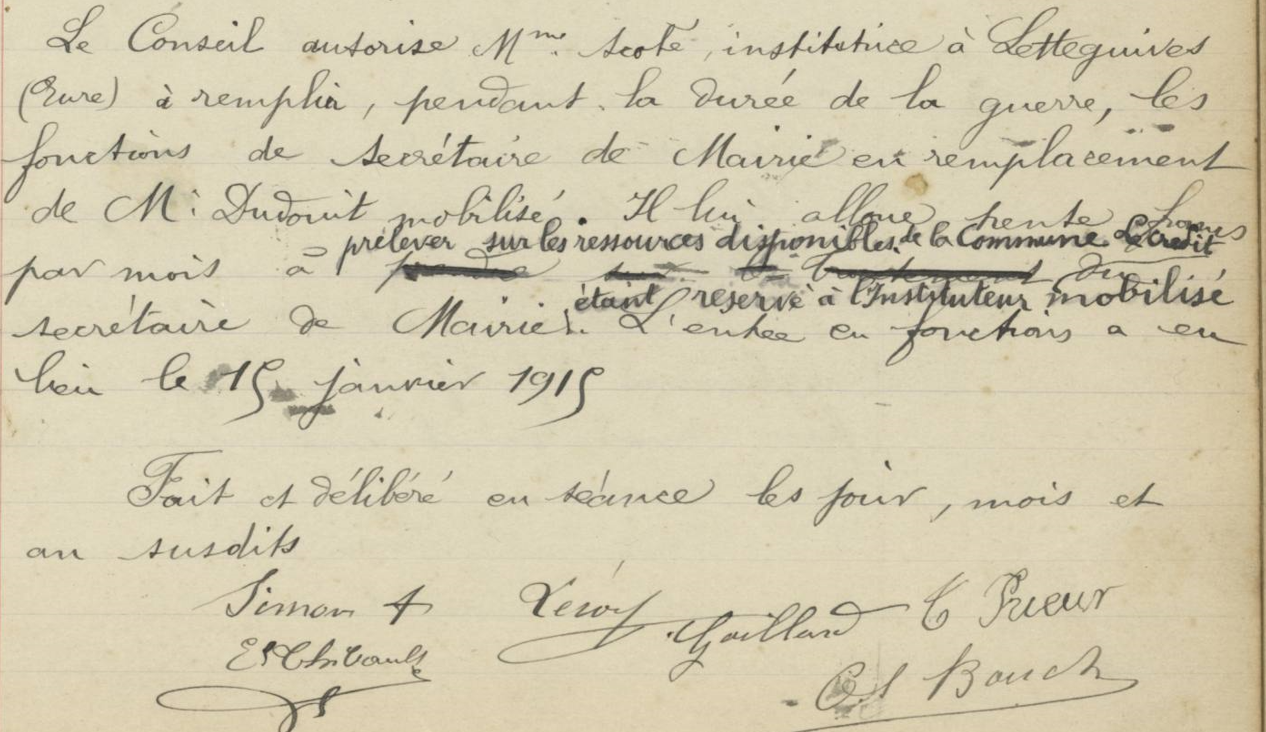 Le Conseil autorise Mme Scoté, institutrice à Letteguives
(Eure) à remplir, pendant la durée de la guerre, les
fonctions de secrétaire de Mairie en remplacement
de Mr Dudouit mobilisé. Il lui alloue trente francs
prélever sur les ressources disponibles de la Commune. Le crédit
par mois à prendre sur le traitement du
étant réservé à l'Instituteur mobilisé
secrétaire de Mairie. L'entrée en fonctions a eu
lieu le 15 janvier 1915
Fait et délibéré en séance les jour, mois et
an susdits
Simon Lesoif Gaillard C Prieur
Et Thibault
Bouch